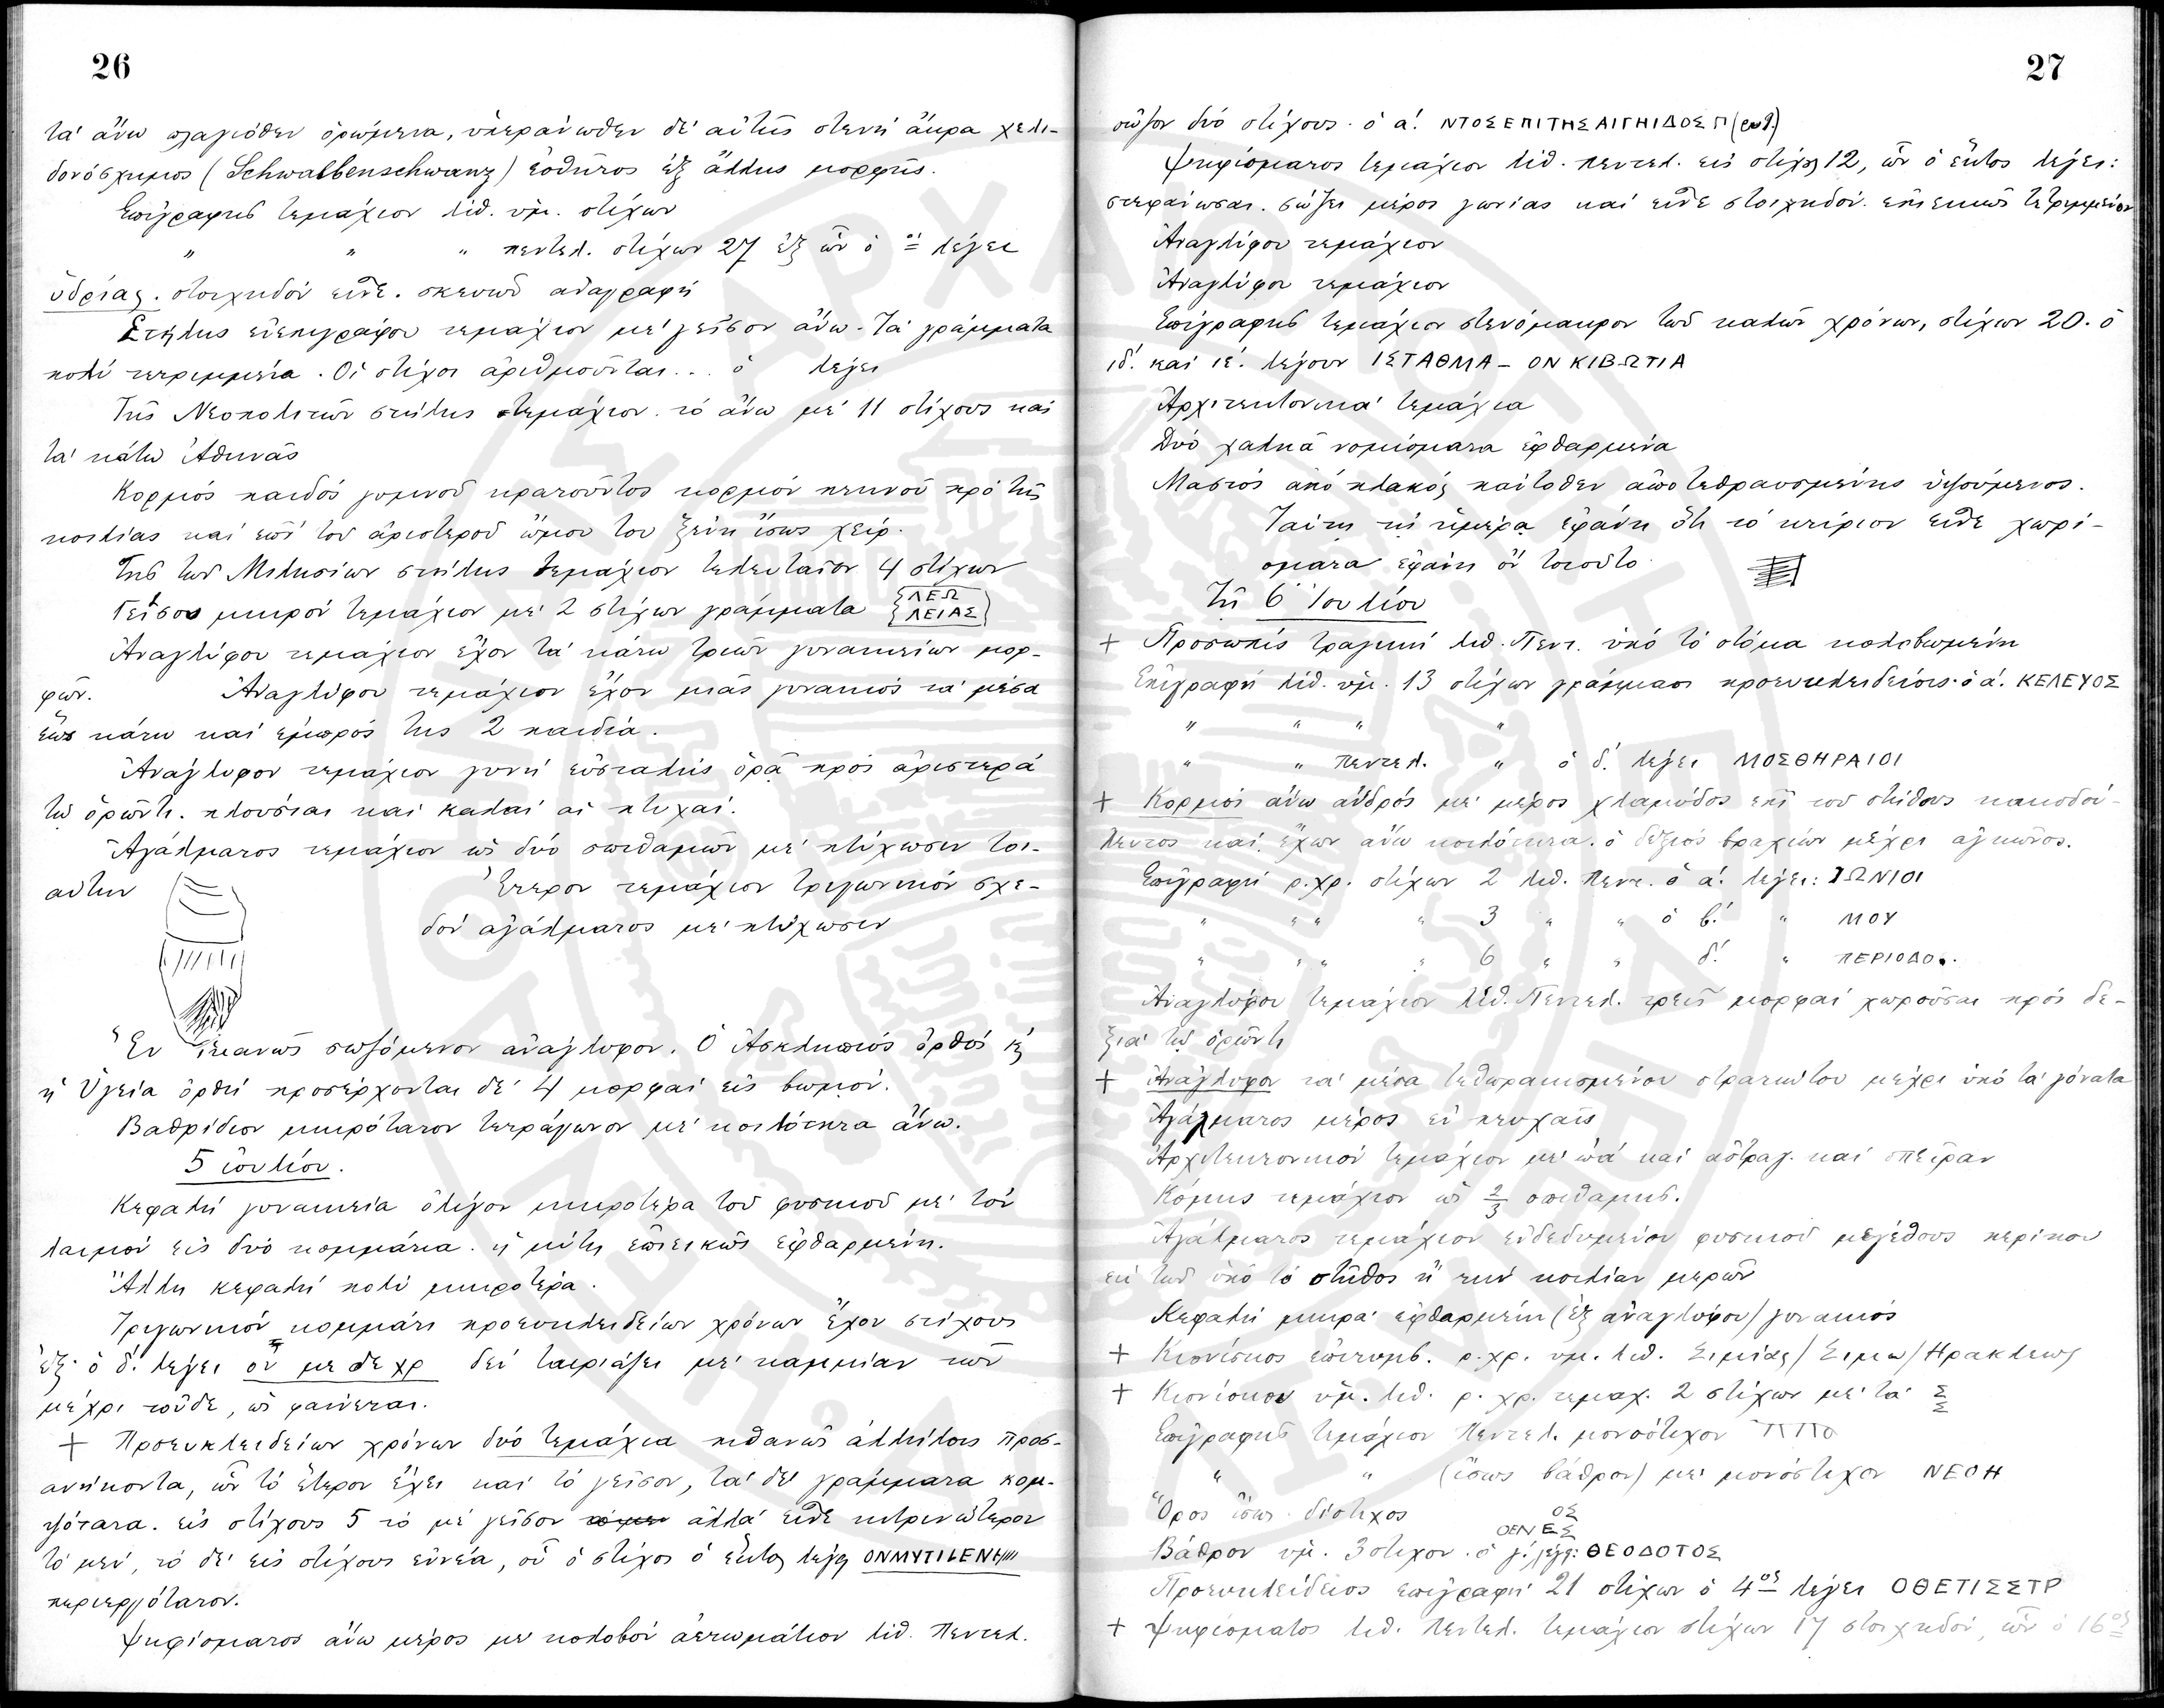 26
τὰ ἄνω πλαγιόθεν ὁρώμενα, ὑπεράνωθεν δὲ αὐτῆς στενὴ ἄκρα χελι-
δονόσχημος (Schwalbenschwanz) ἐσθῆτος ἐξ ἄλλης μορφῆς.
Ἐπιγραφῆς τεμάχιον λίθ. ὑμ. στίχων
" " " πεντελ. στίχων 27 ἐξ ὧν ὁ αʹ λέγει
ὑδρίας. στοιχηδὸν εἶδε. σκευῶν ἀναγραφή
Στήλης ἐνεπιγράφου τεμάχιον μὲ γεῖσον ἄνω. Τὰ γράμματα
πολὺ τετριμμένα. Οἱ στίχοι ἀριθμοῦνται... ὁ λέγει
Τῆς Νεοπολιτῶν στήλης τεμάχιον. τὸ ἄνω μὲ 11 στίχους καὶ
τὰ κάτω Ἀθηνᾶς
Κορμὸς παιδὸς γυμνοῦ κρατοῦντος κορμὸν πτηνοῦ πρὸ τῆς
κοιλίας καὶ ἐπὶ τοῦ ἀριστεροῦ ὤμου του ξένη ἴσως χείρ.
Τῆς τῶν Μιλησίων στήλης τεμάχιον τελευταῖον 4 στίχων
Γείσου μικρὸν τεμάχιον μὲ 2 στίχων γράμματα ΛΕΩ
ΛΕΙΑΣ
Ἀναγλύφου τεμάχιον ἔχον τὰ κάτω τριῶν γυναικείων μορ-
φῶν. Ἀναγλύφου τεμάχιον ἔχον μιᾶς γυναικὸς τὰ μέσα
ἕως κάτω καὶ ἐμπρός της 2 παιδιά.
Ἀνάγλυφον τεμάχιον γυνὴ εὐσταλὴς ὁρᾷ πρὸς ἀριστερὰ
τῷ ὁρῶντι. πλούσιαι καὶ καλαὶ αἱ πτυχαί.
Ἀγάλματος τεμάχιον ὡς δύο σπιθαμῶν μὲ πτύχωσιν τοι-
αύτην Ἕτερον τεμάχιον τριγωνικὸν σχε-
δὸν ἀγάλματος μὲ πτύχωσιν
Ἓν ἱκανῶς σωζόμενον ἀνάγλυφον. Ὁ Ἀσκληπιὸς ὀρθὸς κ
ἡ Ὑγεία ὀρθὴ προσέρχονται δὲ 4 μορφαὶ εἰς βωμόν.
Βαθρίδιον μικρότατον τετράγωνον μὲ κοιλότητα ἄνω.
5 ἰουλίου.
Κεφαλὴ γυναικεία ὀλίγον μικροτέρα τοῦ φυσικοῦ μὲ τὸν
λαιμὸν εἰς δύο κομμάτια. ἡ μύτη ἐπιεικῶς ἐφθαρμένη.
Ἄλλη κεφαλὴ πολὺ μικροτέρα.
Τριγωνικὸν κομμάτι προευκλειδείων χρόνων ἔχον στίχους
ἕξ. ὁ δʹ. λέγει ον με δε χρ δὲν ταιριάζει μὲ καμμίαν τῶν
μέχρι τοῦδε, ὡς φαίνεται.
+ Προευκλειδείων χρόνων δύο τεμάχια πιθανῶς ἀλλήλοις προσ-
ανήκοντα, ὧν τὸ ἕτερον ἔχει καὶ τὸ γεῖσον, τὰ δὲ γράμματα κομ-
ψότατα. εἰς στίχους 5 τὸ μὲ γεῖσον ἀλλὰ εἶδε κιτρινώτερον
τὸ μέν, τὸ δὲ εἰς στίχους ἐννέα, οὗ ὁ στίχος ὁ ἕκτος λέγει ΟΝΜΥΤΙLΕΝΗ
περιεργότατον.
Ψηφίσματος ἄνω μέρος μὲ κολοβὸν ἀετωμάτιον λίθ. Πεντελ.
27
σῶζον δύο στίχους. ὁ αʹ. ΝΤΟΣΕΠΙΤΗΣΑΙΓΗΙΔΟΣΠ
Ψηφίσματος τεμάχιον λίθ. πεντελ. εἰς στίχους 12, ὧν ὁ ἕκτος λέγει:
στεφανῶσαι. σώζει μέρος γωνίας καὶ εἶδε στοιχηδόν. ἐπιεικῶς τετριμμένον
Ἀναγλύφου τεμάχιον
Ἀναγλύφου τεμάχιον
Ἐπιγραφῆς τεμάχιον στενόμακρον τῶν καλῶν χρόνων, στίχων 20. ὁ
ιδʹ. καὶ ιεʹ. λέγουν ΙΣΤΑΘΜΑ – ΟΝ ΚΙΒΩΤΙΑ
Ἀρχιτεκτονικὰ τεμάχια
Δύο χαλκᾶ νομίσματα ἐφθαρμένα
Μαστὸς ἀπὸ πλακὸς κάτωθεν ἀποτεθραυσμένης ὑψούμενος.
Ταύτῃ τῇ ἡμέρᾳ ἐφάνη ὅτι τὸ κτίριον εἶδε χωρί-
σματα ἐφάνη ὂν τοιοῦτο
Τῇ 6 Ἰουλίου
+ Προσωπὶς τραγικὴ λίθ. Πεντ. ὑπὸ τὸ στόμα κολοβωμένη
Ἐπιγραφὴ λίθ. ὑμ. 13 στίχων γράμμασι προευκλειδείοις. ὁ αʹ. ΚΕΛΕΥΟΣ
" " " "
" " Πεντελ. " ὁ δʹ. λέγει ΜΟΣΘΗΡΑΙΟΙ
+ Κορμὸς ἄνω ἀνδρὸς μὲ μέρος χλαμύδος ἐπὶ τοῦ στήθους
καὶ ἔχων ἄνω κοιλότητα. ὁ δεξιὸς βραχίων μέχρι ἀγκῶνος.
Ἐπιγραφὴ ρ. χρ. στίχων 2 λίθ. Πεντ. ὁ αʹ. λέγει: ΙΩΝΙΟΙ
" " " " 3 " " ὁ βʹ. " ΜΟΥ
" " " " 6 " " δʹ. " ΠΕΡΙΟΔΟ..
Ἀναγλύφου τεμάχιον λίθ. Πεντελ. τρεῖς μορφαὶ χωροῦσαι πρὸς δε-
ξιὰ τῷ ὁρῶντι
+ Ἀνάγλυφον τὰ μέσα τεθωρακισμένου στρατιώτου μέχρι ὑπὸ τὰ γόνατα
Ἀγάλματος μέρος ἐν πτυχαῖς
Ἀρχιτεκτονικὸν τεμάχιον μὲ ὠὰ καὶ ἀστραγ. καὶ σπεῖραν
Κόμης τεμάχιον ὡς 2/3 σπιθαμῆς.
Ἀγάλματος τεμάχιον ἐνδεδυμένου φυσικοῦ μεγέθους περίπου
ἐκ τῶν ὑπὸ τὸ στῆθος ἢ τὴν κοιλίαν μερῶν
Κεφαλὴ μικρὰ ἐφθαρμένη (ἐξ ἀναγλύφου) γυναικός
+ Κιονίσκος ἐπιτυμβ. ρ. χρ. ὑμ. λίθ. Σιμίας/Σιμω/Ηρακλεως
+ Κιονίσκου ὑμ. λίθ. ρ. χρ. τεμαχ. 2 στίχων μὲ τὰ Σ
Σ
Ἐπιγραφῆς τεμάχιον Πεντελ. μονόστιχον ΠΠο
" " (ἴσως βάθρον) μὲ μονόστιχον ΝΕΟΗ
Ὅρος ἴσως δίστιχος ΟΣ
ΟΕΝΕΣ
Βάθρον ὑμ. 3στιχον. ὁ γʹ. λέγει: ΘΕΟΔΟΤΟΣ
Προευκλείδειος ἐπιγραφὴ 21 στίχων ὁ 4ος λέγει ΟΘΕΤΙΣΣΤΡ
+ Ψηφίσματος λίθ. Πεντελ. τεμάχιον στίχων 17 στοιχηδόν, ὧν ὁ 16ος